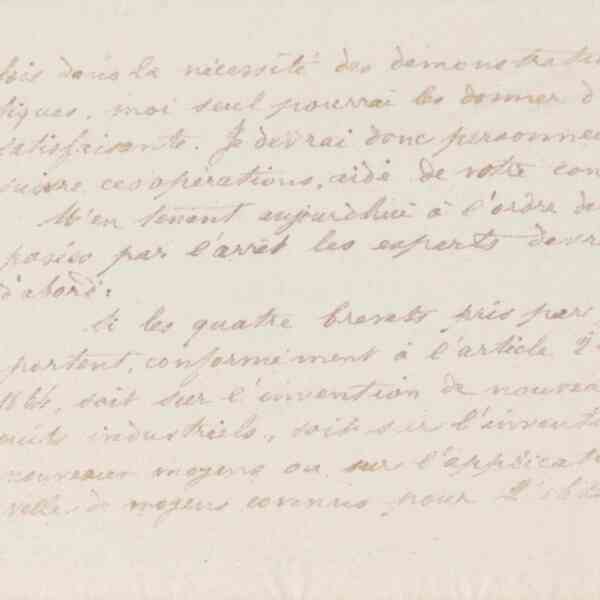 dans la nécessité des demonstrati
tiques, moi seul pourrai les donner d
satisfaisante. Je devrai donc personnel
suivre ces opérations, aidé de votre con
M'en tenant aujourd'hui à l'ordre de
posées par l'arrêt les experts devr
d'abord:
Si les quatre brevets pris par
portent, conformément à l'article 2
soit sur l'invention de nouveau
industriels, soit sur l'inventi
nouveaux moyens ou sur l'applicat
velle de moyens connus pour l'obt